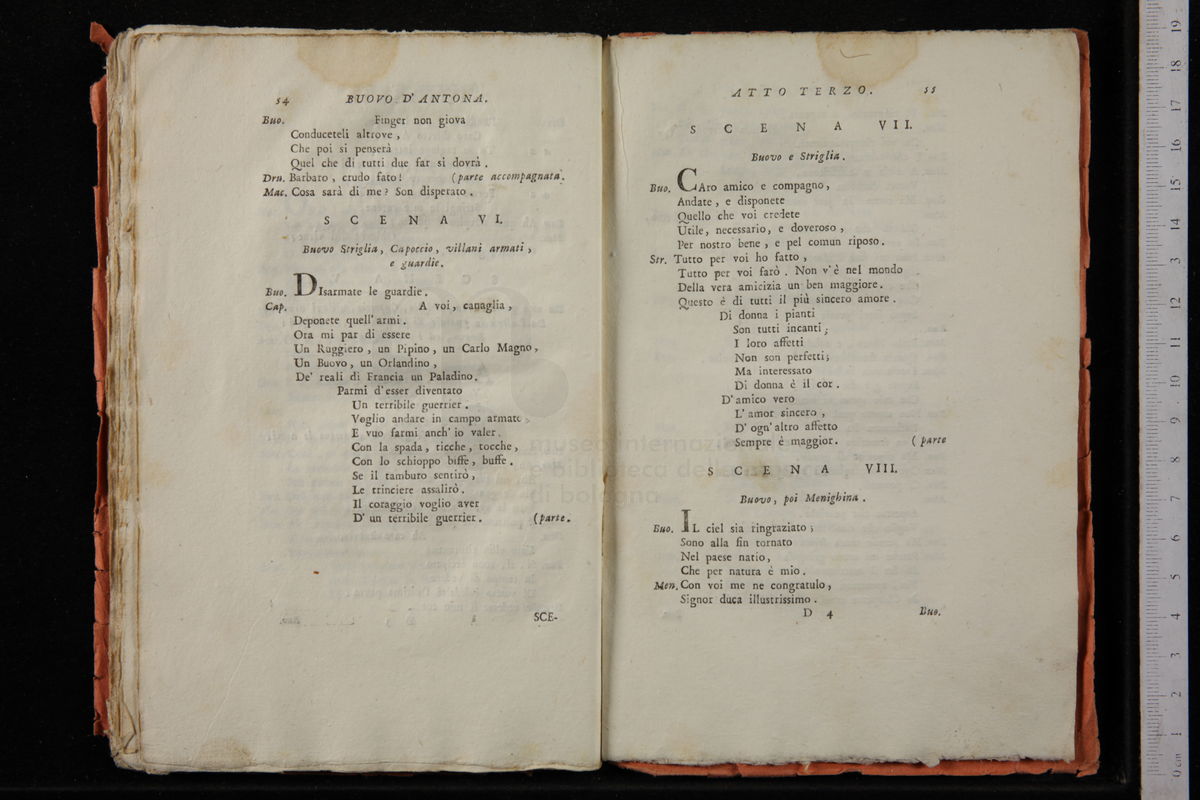 54 BUOVO D'ANTONA.
Buo. Finger non giova
Conduceteli altrove,
Che poi si penserà
Quel che di tutti due far si dovrà.
Dru. Barbaro, crudo fato! (parte accompagnata.
Mac. Cosa sarà di me? Son disperato.
SCENA VI.
Buovo Striglia, Capoccio, villani armati,
e guardie.
Buo. DIsarmate le guardie.
Cap. A voi, canaglia,
Deponete quell'armi.
Ora mi par di essere
Un Ruggiero, un Pipino, un Carlo Magno,
Un Buovo, un Orlandino,
De' reali di Francia un Paladino.
Parmi d'esser diventato
Un terribile guerrier.
Voglio andare in campo armato
E vuo farmi anch'io valer.
Con la spada, ticche, tocche,
Con lo schioppo biffe, buffe.
Se il tamburo sentirò,
Le trinciere assalirò.
Il coraggio voglio aver
D'un terribile guerrier. (parte.
SCE-
ATTO TERZO. 55
SCENA VII.
Buovo e Striglia.
Buo. CAro amico e compagno,
Andate, e disponete
Quello che voi credete
Utile, necessario, e doveroso,
Per nostro bene, e pel comun riposo.
Str. Tutto per voi ho fatto,
Tutto per voi farò. Non v'è nel mondo
Della vera amicizia un ben maggiore.
Questo è di tutti il più sincero amore.
Di donna i pianti
Son tutti incanti;
I loro affetti
Non son perfetti;
Ma interessato
Di donna è il cor.
D'amico vero
L'amor sincero,
D'ogn'altro affetto
Sempre è maggior. (parte
SCENA VIII.
Buovo, poi Menighina.
Buo. IL ciel sia ringraziato;
Sono alla fin tornato
Nel paese natio,
Che per natura è mio.
Men. Con voi me ne congratulo,
Signor duca illustrissimo.
D 4 Buo.
museo internazionale
e biblioteca della musica
di bologna
0 cm 1 2 3 4 5 6 7 8 9 10 11 12 13 14 15 16 17 18 19